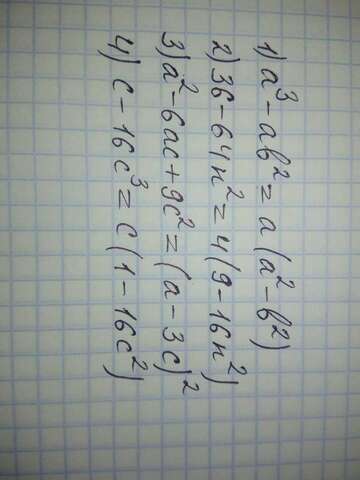 1) a³ - ab² = a (a² - b²)
2) 36 - 64n² = 4 (9 - 16n²)
3) a² - 6ac + 9c² = (a - 3c)²
4) c - 16c³ = c (1 - 16c²)